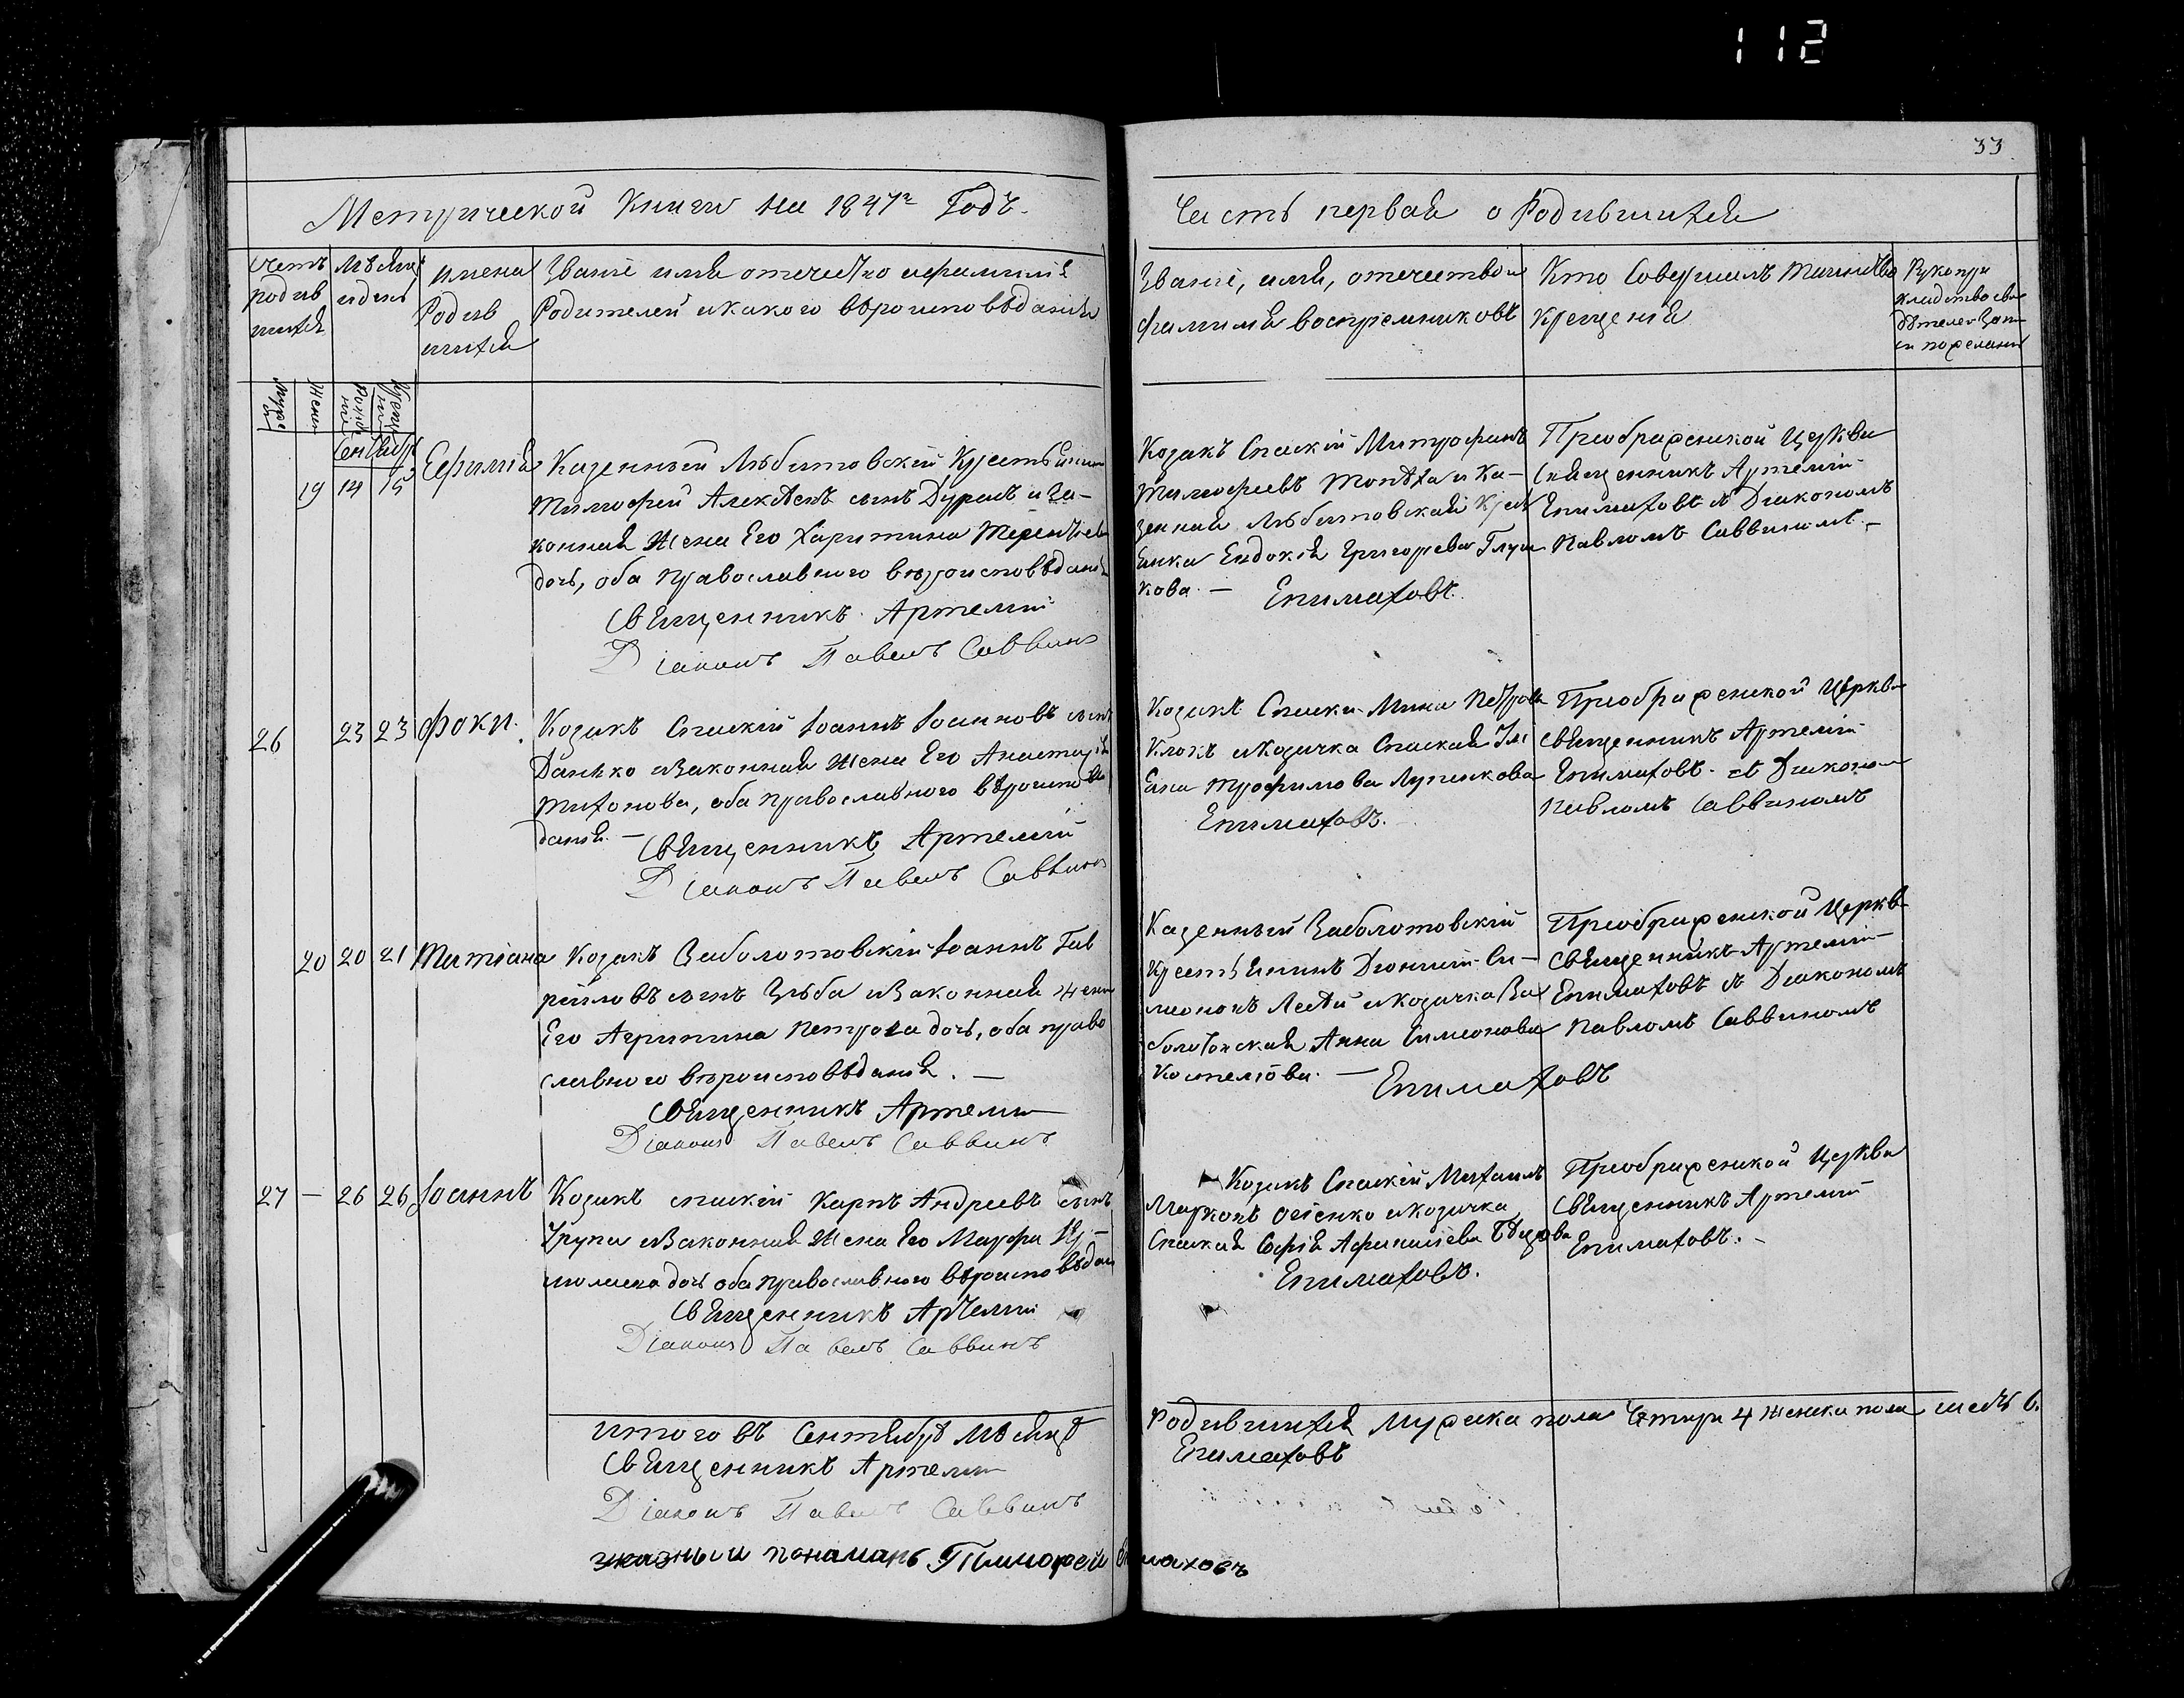 112
33
Метрической Книги на 1847й Годъ.
Часть первая о Родившихся
Счетъ родив шихся
Мѣсяцъ и день
имена Родив шихся
Званіе имя отечество и фамилія
Родителей и какого вѣроисповѣданія
Званіе, имя, отечество и
фамилія воспріемниковъ
Кто Совершилъ таинство
крещенія
Рукопри
кладство сви
дѣтелей Запи
си по желанію
Муже
Жен
Рожде нія
Креще нія
Сентябрь
19 14 15 Ефимія
Казенный Любитовскій Крестьянинъ
Тимофей Алексѣевъ сынъ Дурал и За-
конная Жена Его Харитина Терентіева
дочь, оба православного вѣроисповѣданія
Священникъ Артемій
Діаконъ Павелъ Саввинъ
Козакъ Спаскій Митрофанъ
Тимофеевъ и Ка-
зенная Любитовская Крест
янка Евдокія Григорьева
кова. — Епимаховъ.
Преображенской Церкви
Священникъ Артемій
Епимаховъ съ Діакономъ
Павломъ Саввиномъ. —
26 23 23 Фока.
Козакъ Спаскій Іоаннъ Іоанновъ сынъ
Данько и Законная Жена Его Анастасія
Тихонова, оба православного вѣроисповѣ
данія. — Священникъ Артемій
Діаконъ Павелъ Саввинъ
Козакъ Спаски Мина Петровъ
Клокъ и Козачка Спаская
Трофимова Лупикова
Епимаховъ.
Преображенской Церкви
Священникъ Артемій
Епимаховъ съ Діаконом
Павломъ Саввиномъ
20 20 21 Татіана
Козакъ Заболотовскій Іоаннъ Гав
рійловъ сынъ Зюба и Законная жена
Его Агрипина Петрова дочь, оба право
славного вѣроисповѣданія. —
Священникъ Артемій
Діаконъ Павелъ Саввинъ
Казенный Заболотовскій
Крестьянинъ Діонисій Си-
меоновъ и Козачка За
болотовская Анна Симеонова
Костелова. — Епимаховъ
Преображенской Церкви
Священникъ Артемій
Епимаховъ съ Діакономъ
Павломъ Саввиномъ
27 — 26 26 Іоаннъ
Козакъ спаскій Карпъ Андреевъ сынъ
Крупа и Законная Жена Его Марфа
дочь оба православного вѣроисповѣдан
Священникъ Артемій
Діаконъ Павелъ Саввинъ
Козакъ Спаскій Михаилъ
Марковъ Осіенко и Козачка
Спаская Софія Афанасіева
Епимаховъ.
Преображенской Церкви
Священникъ Артемій
Епимаховъ. —
Итого въ Сентябрѣ мѣсяцѣ
Родившихся Мужеска пола Четыри 4 женска пола шесть 6.
Священникъ Артемій
Епимаховъ
Діаконъ Павелъ Саввинъ
пономарь Тимофей Епимаховъ